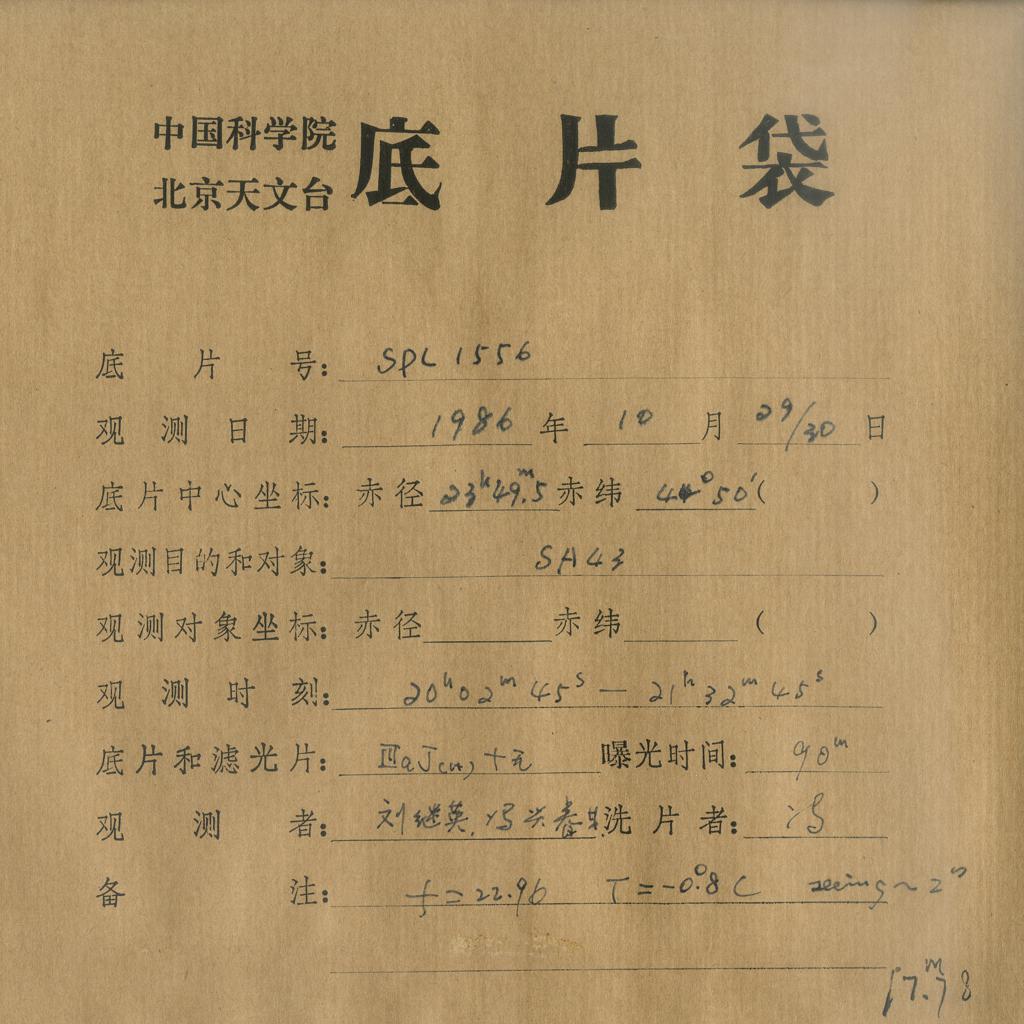 中国科学院
北京天文台 底片袋
底片号: SPL 1556
观测日期: 1986 年 10 月 29/30 日
底片中心坐标: 赤径 23ʰ49ᵐ.5 赤纬 44°50′( )
观测目的和对象: SA43
观测对象坐标: 赤径 赤纬 ( )
观测时刻: 20ʰ02ᵐ45ˢ — 21ʰ32ᵐ45ˢ
底片和滤光片: ⅢaJ(H)+无 曝光时间: 90ᵐ
观测者: 刘继英, 冯兴春 洗片者: 冯
备注: f=22.96 T=-0.8°C seeing~2"
17.ᵐ78